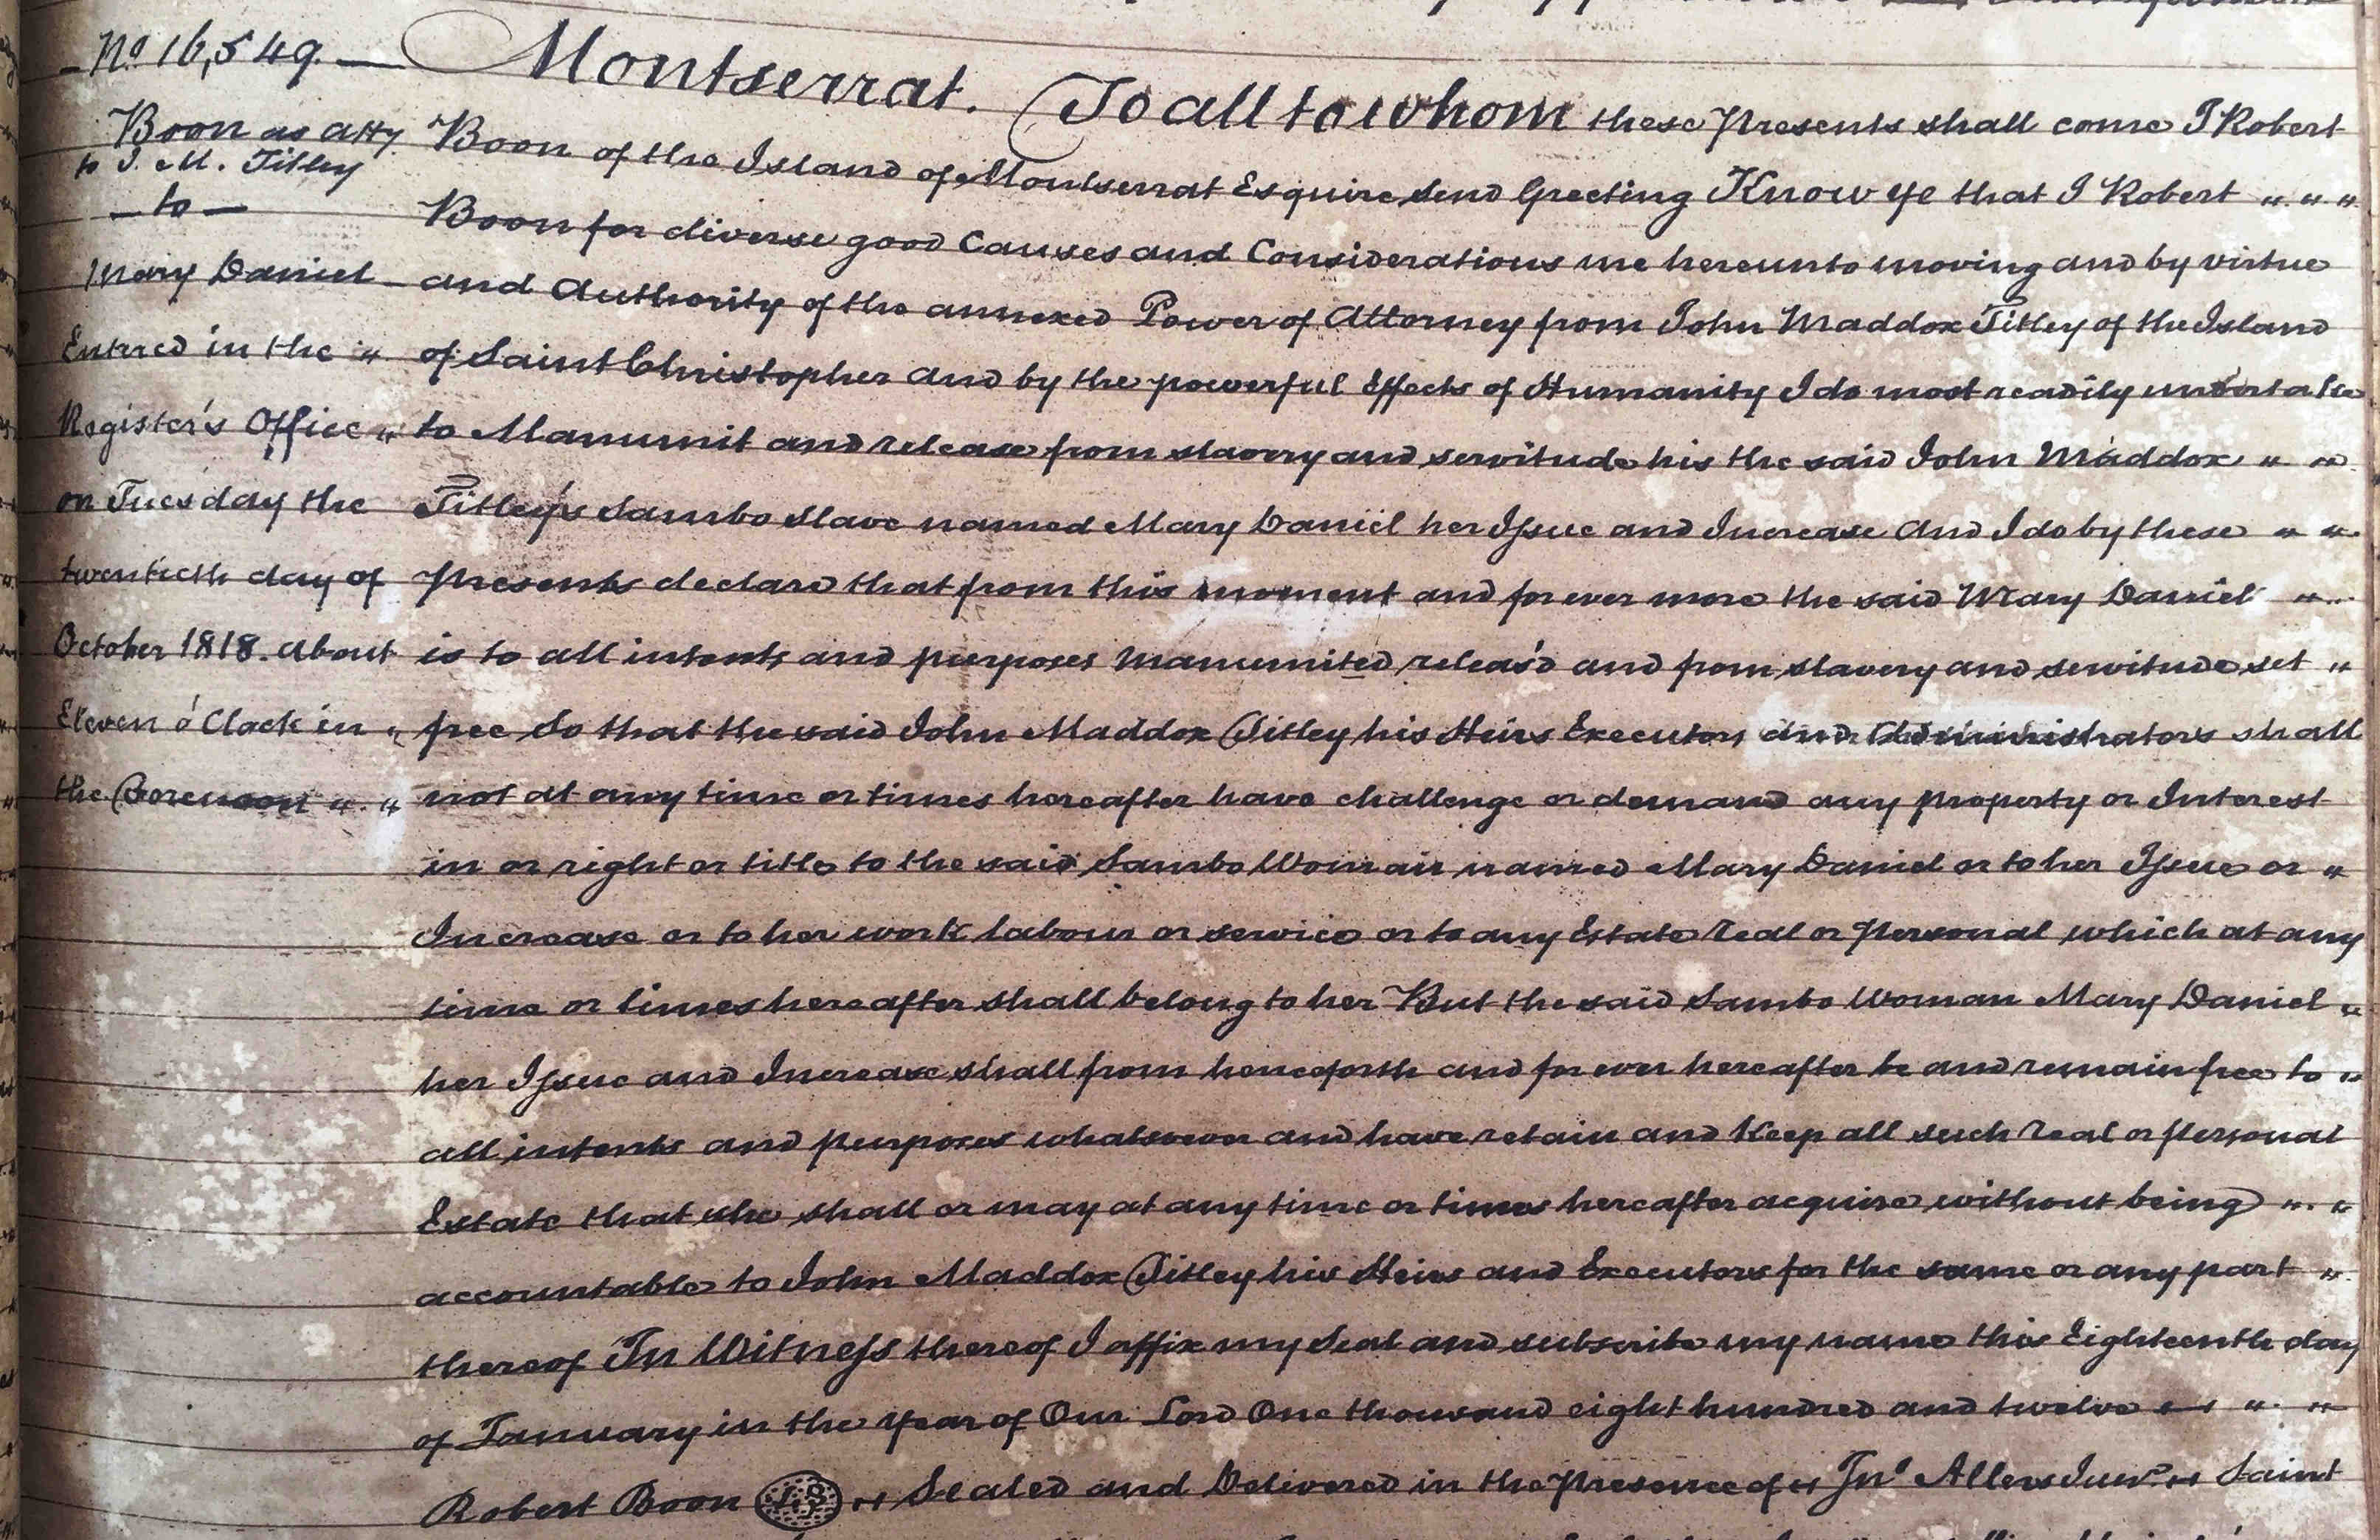 No. 16,549.
Boon as atty
to J. M. Titley
to
Mary Daniel
Entered in the "
Register's Office "
on Tuesday the
twentieth day of
October 1818. about
Eleven o'Clock in "
the Forenoon " . "
Montserrat. To all to whom these Presents shall come I Robert
Boon of the Island of Montserrat Esquire send Greeting Know ye that I Robert " " "
Boon for diverse good Causes and Considerations me hereunto moving and by virtue
and Authority of the annexed Power of Attorney from John Maddox Titley of the Island
of Saint Christopher and by the powerful Effects of Humanity I do most readily undertake
to Manumit and release from slavery and servitude his the said John Maddox " "
Titley's Sambo Slave named Mary Daniel her Issue and Increase And I do by these " "
Presents declare that from this moment and for ever more the said Mary Daniel "
is to all intents and purposes manumited releas'd and from slavery and servitude set "
free So that the said John Maddox Titley his Heirs Executors and Administrators shall
not at any time or times hereafter have challenge or demand any property or Interest
in or right or title to the said Sambo Woman named Mary Daniel or to her Issue or "
Increase or to her work labour or service or to any Estate real or Personal which at any
time or times hereafter shall belong to her But the said Sambo Woman Mary Daniel "
her Issue and Increase shall from henceforth and for ever hereafter be and remain free to "
all intents and purposes whatsoever and have retain and Keep all such real or personal
Estate that she shall or may at any time or times hereafter acquire without being " "
accountable to John Maddox Titley his Heirs and Executors for the same or any part "
thereof In Witness thereof I affix my Seal and subscribe my name this Eighteenth day
of January in the Year of Our Lord One thousand eight hundred and twelve " "
Robert Boon L.S. Sealed and Delivered in the Presence of Jno Allers Saint